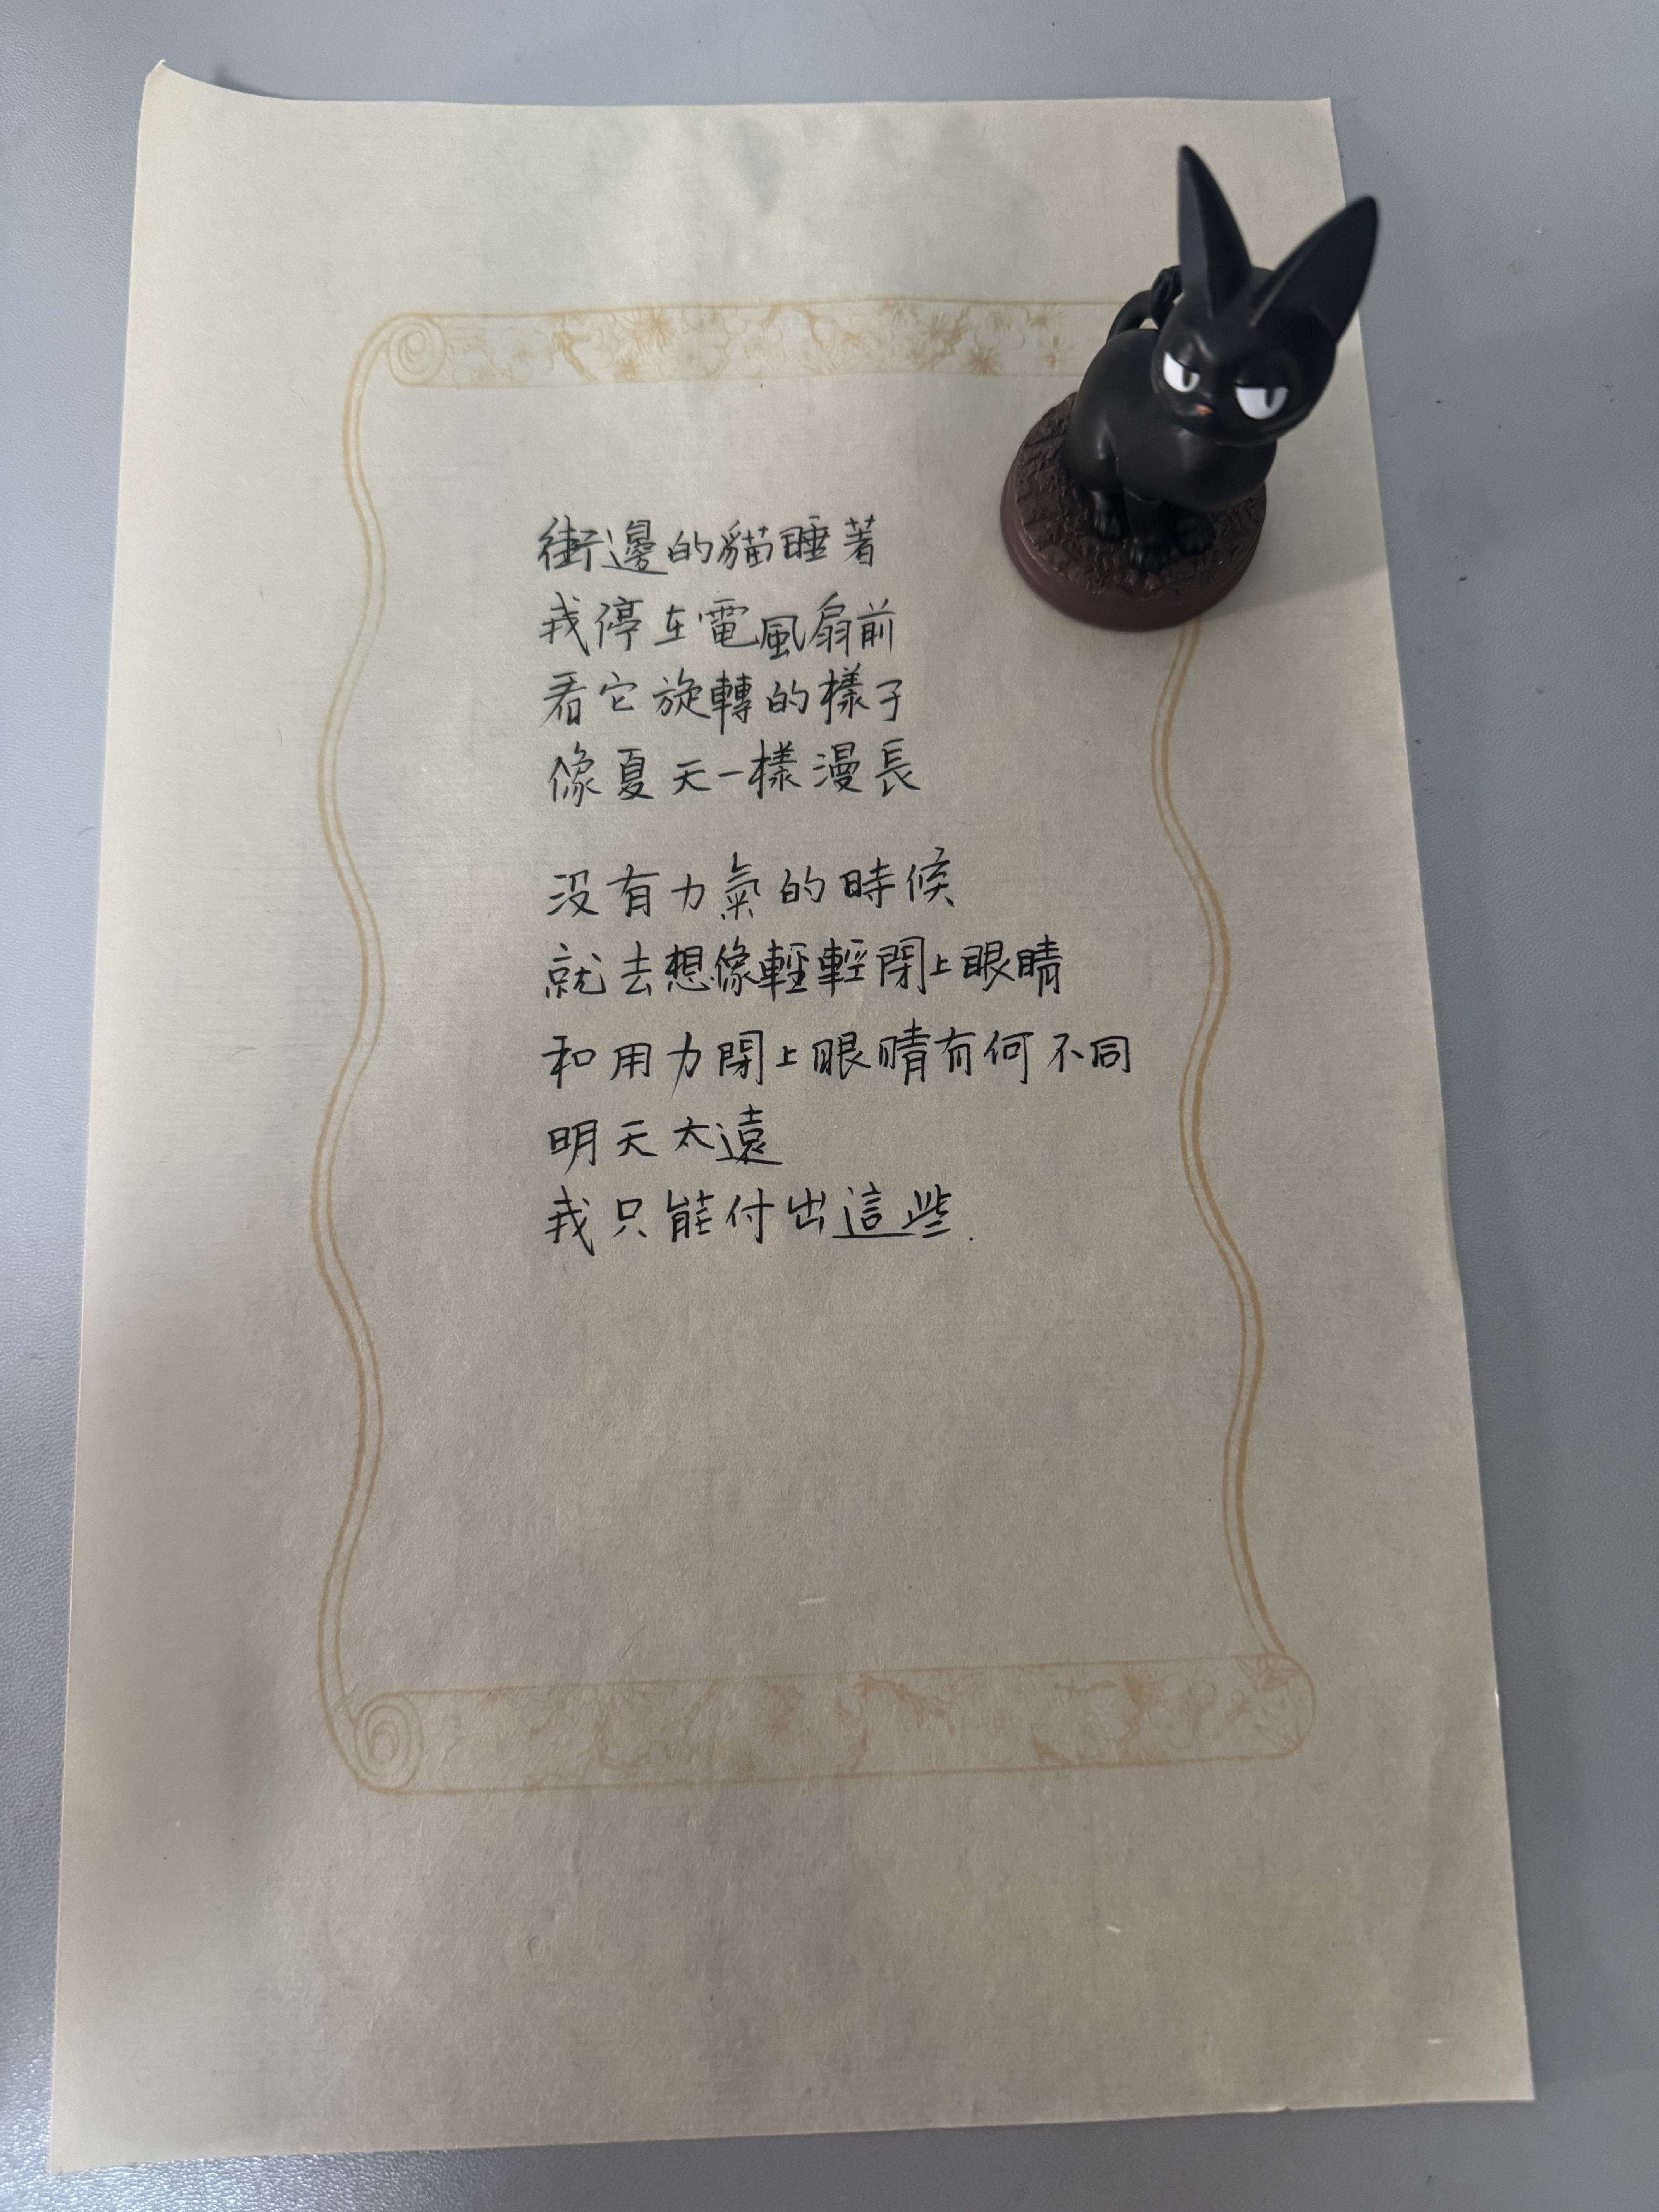 街邊的貓睡著
我停在電風扇前
看它旋轉的樣子
像夏天一樣漫長
沒有力氣的時候
就去想像輕輕閉上眼睛
和用力閉上眼睛有何不同
明天太遠
我只能付出這些.